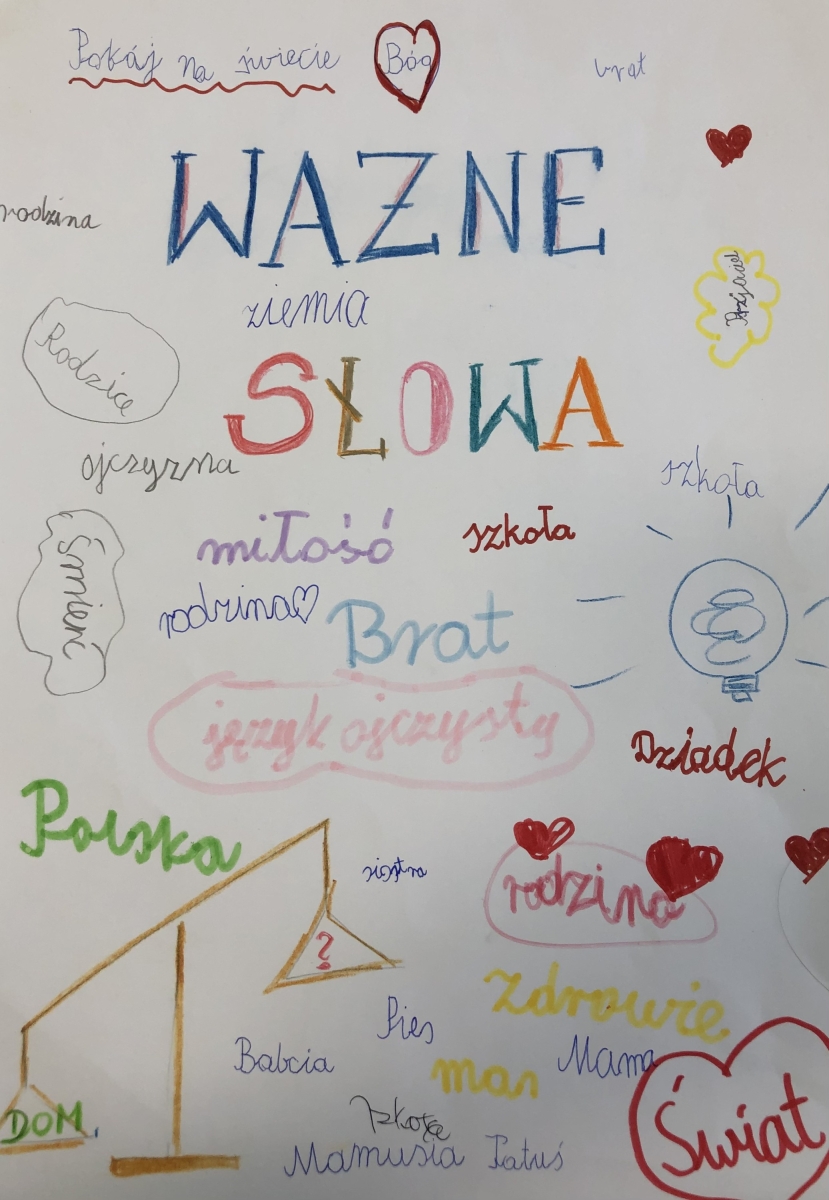 Pokój na świecie
Bóg
brat
WAŻNE
rodzina
Przyjaciel
ziemia
Rodzice
SŁOWA
ojczyzna
szkoła
miłość
szkoła
Śmierć
rodzina
Brat
język ojczysty
Dziadek
Polska
siostra
rodzina
?
zdrowie
Pies
Babcia
Mama
DOM
Świat
Mamusia Tatuś